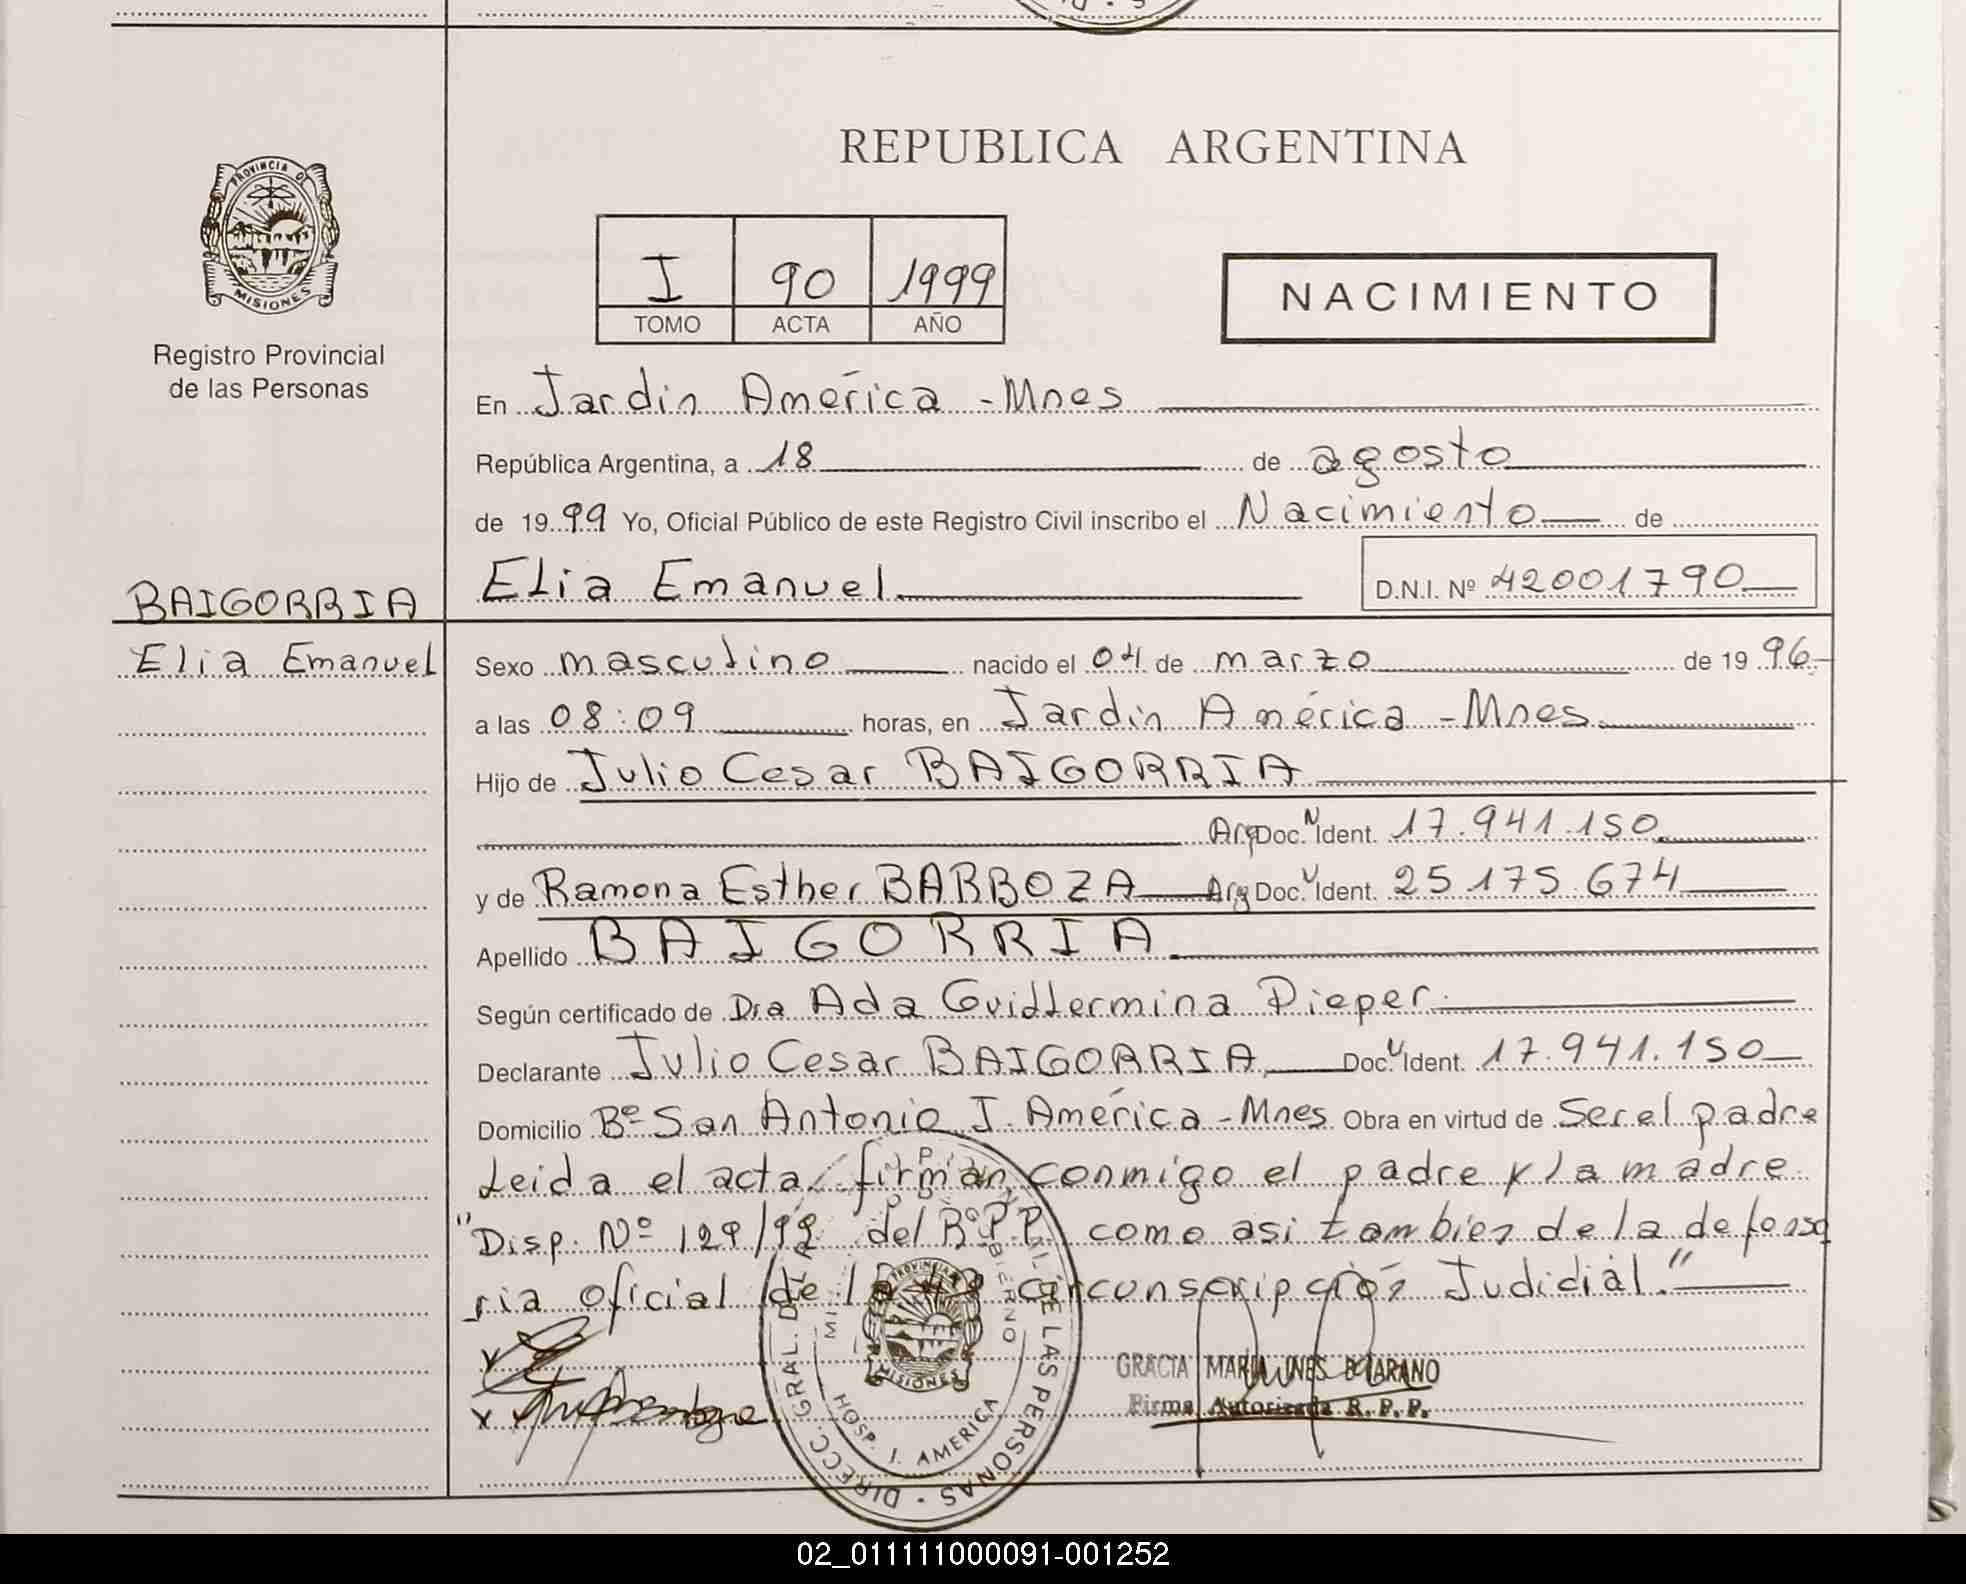 PROVINCIA DE
MISIONES
Registro Provincial
de las Personas
BAIGORRIA
Elia Emanuel
REPUBLICA ARGENTINA
I 90 1999
TOMO ACTA AÑO
NACIMIENTO
En Jardin América - Mnes
República Argentina, a 18 de agosto
de 1999 Yo, Oficial Público de este Registro Civil inscribo el Nacimiento de
Elia Emanuel D.N.I. Nº 42001790
Sexo masculino nacido el 04 de marzo de 1996
a las 08:09 horas, en Jardin América - Mnes
Hijo de Julio Cesar BAIGORRIA
Arg Doc. N Ident. 17.941.150
y de Ramona Esther BARBOZA Arg Doc. Ident. 25.175.674
Apellido BAIGORRIA
Según certificado de Dra Ada Guillermina Pieper
Declarante Julio Cesar BAIGORRIA Doc. Ident. 17.941.150
Domicilio Bº San Antonio J. América - Mnes Obra en virtud de Ser el padre
Leida el acta firman conmigo el padre y la madre
"Disp. Nº 129/99 del R.P.P. como asi tambien de la defenso
ria oficial de la circunscripción Judicial."
DIRECC. GRAL. DE LAS PERSONAS
HOSP. J. AMERICA
MISIONES
GRACIA MARIA INES
Firma Autorizada R. P. P.
02_011111000091-001252